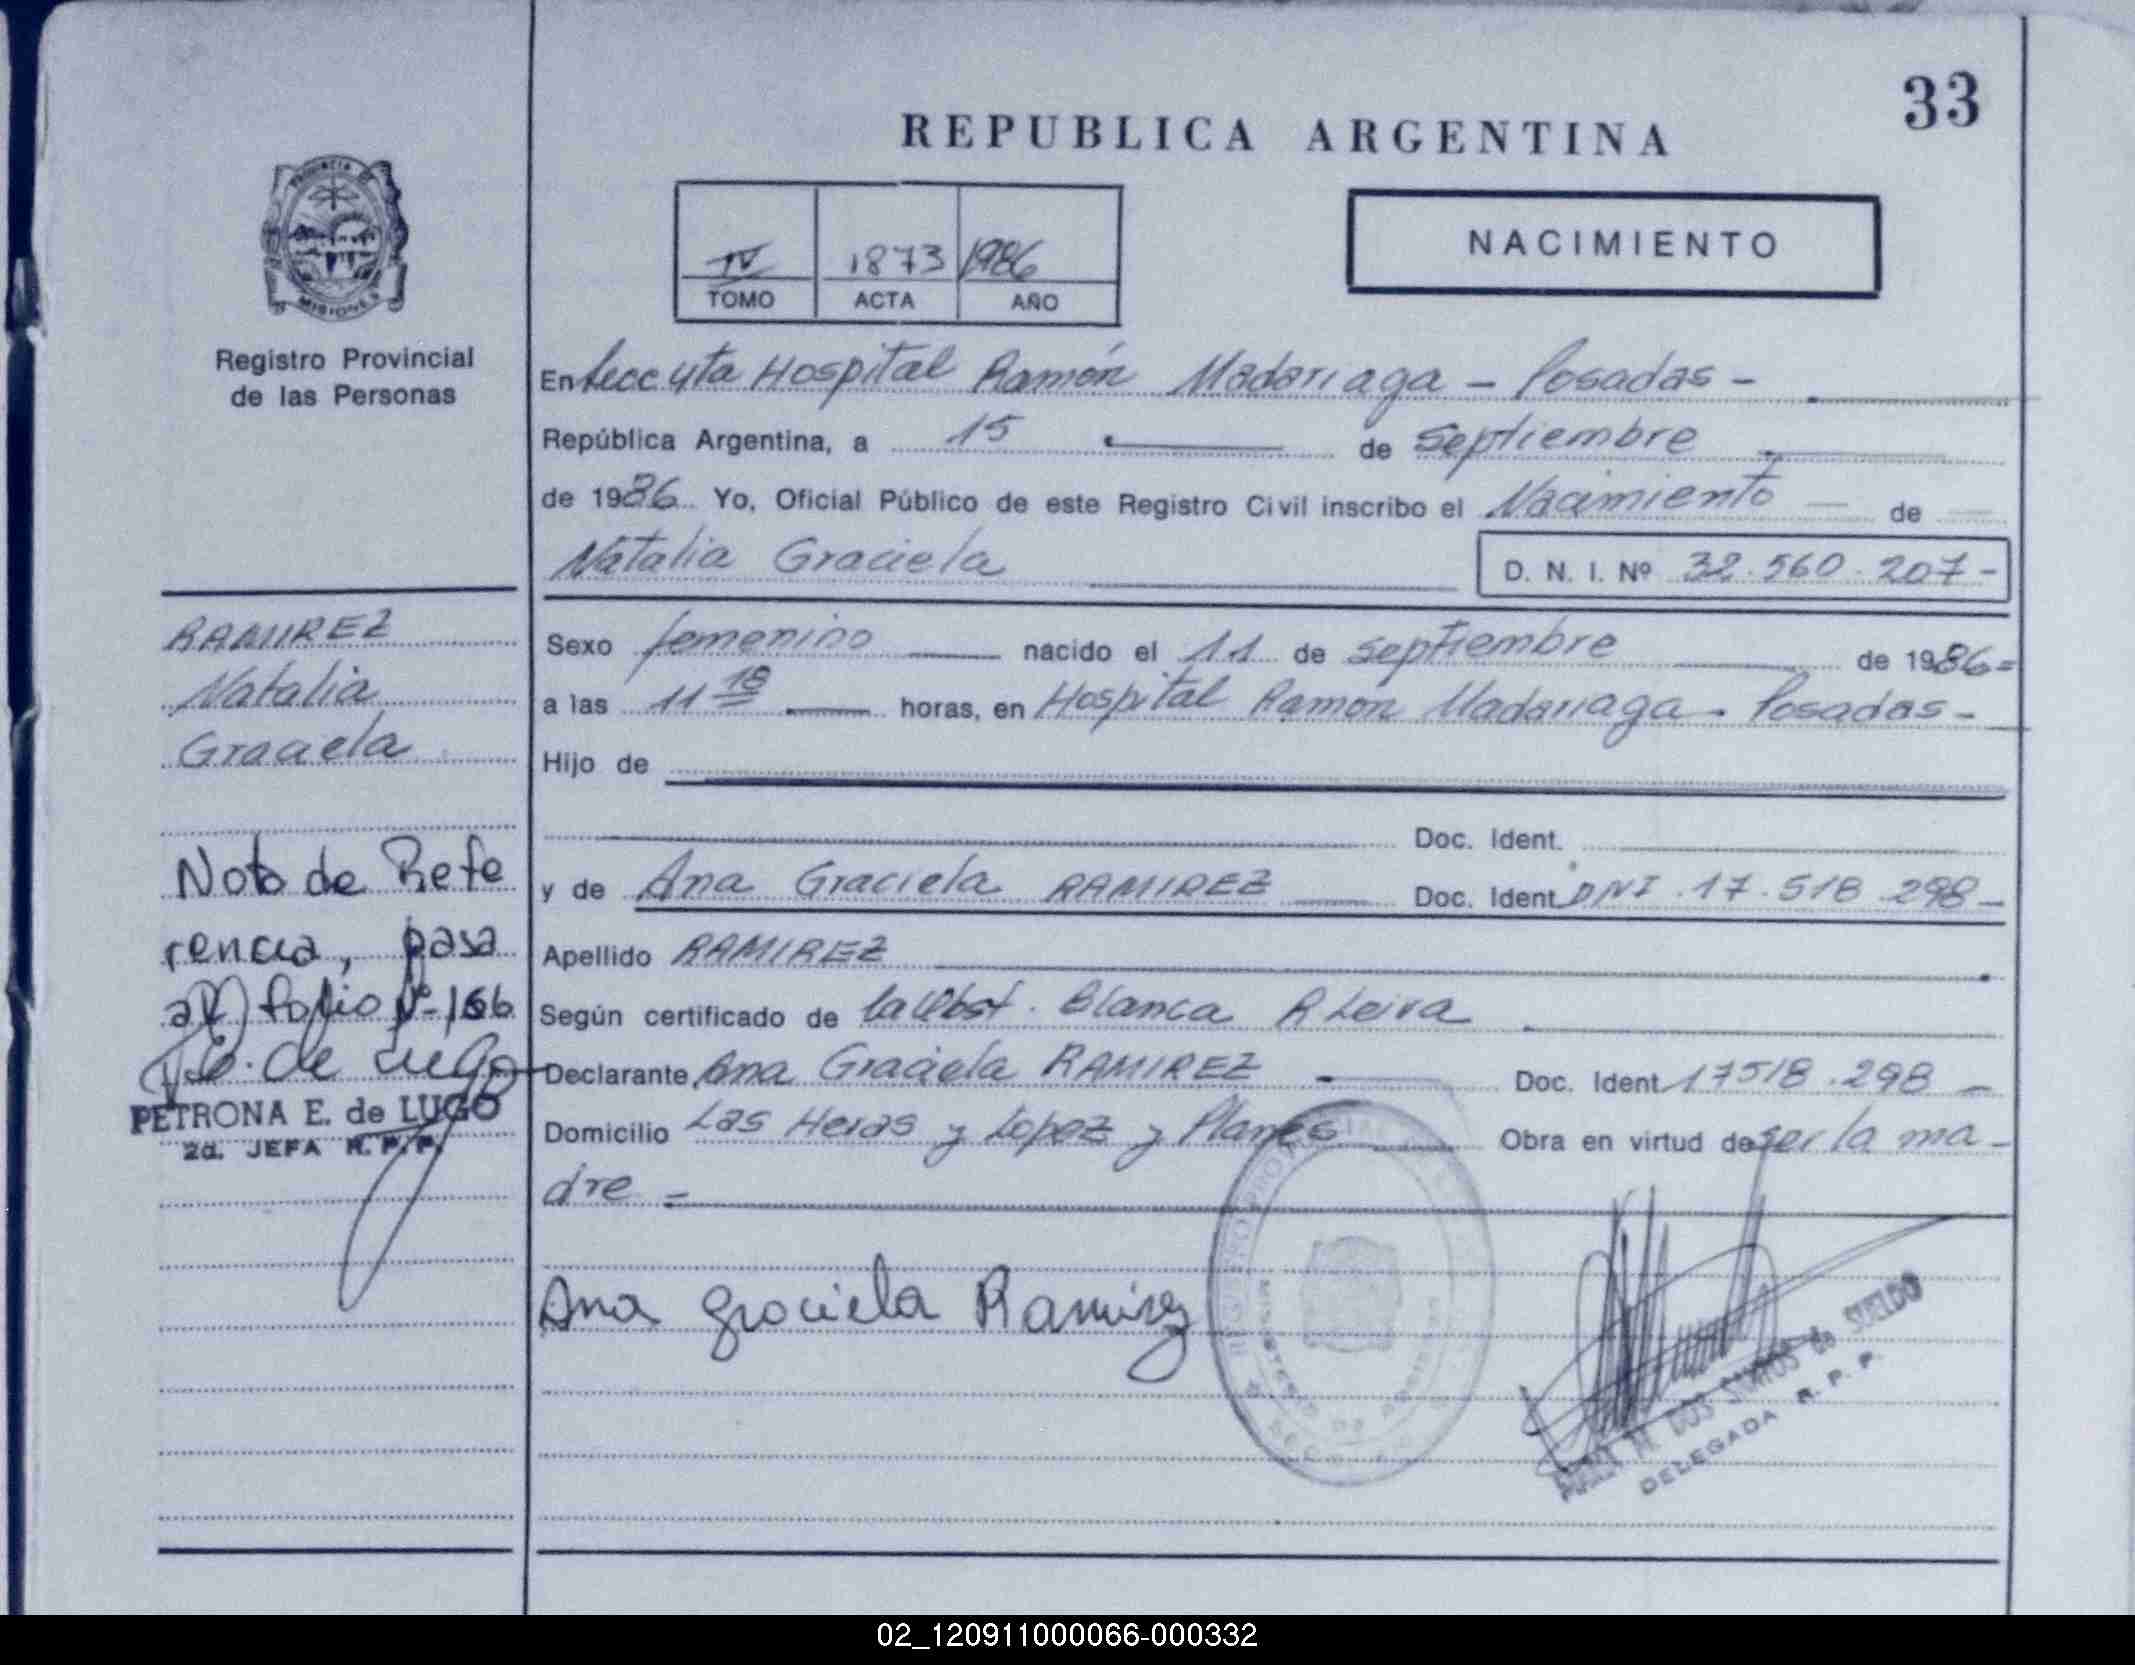 33
REPUBLICA ARGENTINA
PROVINCIA DE
MISIONES
Registro Provincial
de las Personas
IV 1873 1986
TOMO ACTA AÑO
NACIMIENTO
En Secc 4ta Hospital Ramón Madariaga - Posadas -
República Argentina, a 15 de Septiembre
de 1986 Yo, Oficial Público de este Registro Civil inscribo el Nacimiento de
Natalia Graciela D. N. I. Nº 32.560.207-
RAMIREZ
Natalia
Graciela
Sexo femenino nacido el 11 de Septiembre de 1986=
a las 11 18 horas, en Hospital Ramón Madariaga - Posadas -
Hijo de
Doc. Ident.
y de Ana Graciela RAMIREZ Doc. Ident. DNI 17.518.298-
Apellido RAMIREZ
Según certificado de la Obst. Blanca R Leiva
Declarante Ana Graciela RAMIREZ Doc. Ident. 17518.298 -
Domicilio Las Heras y Lopez y Planes Obra en virtud de ser la ma-
dre =
Nota de Refe
rencia, pasa
al folio Nº 166
de Lugo
PETRONA E. de LUGO
2da. JEFA R.P.P.
Ana Graciela Ramirez
M. DOS SANTOS de SUELDO
DELEGADA R. P. P.
02_120911000066-000332